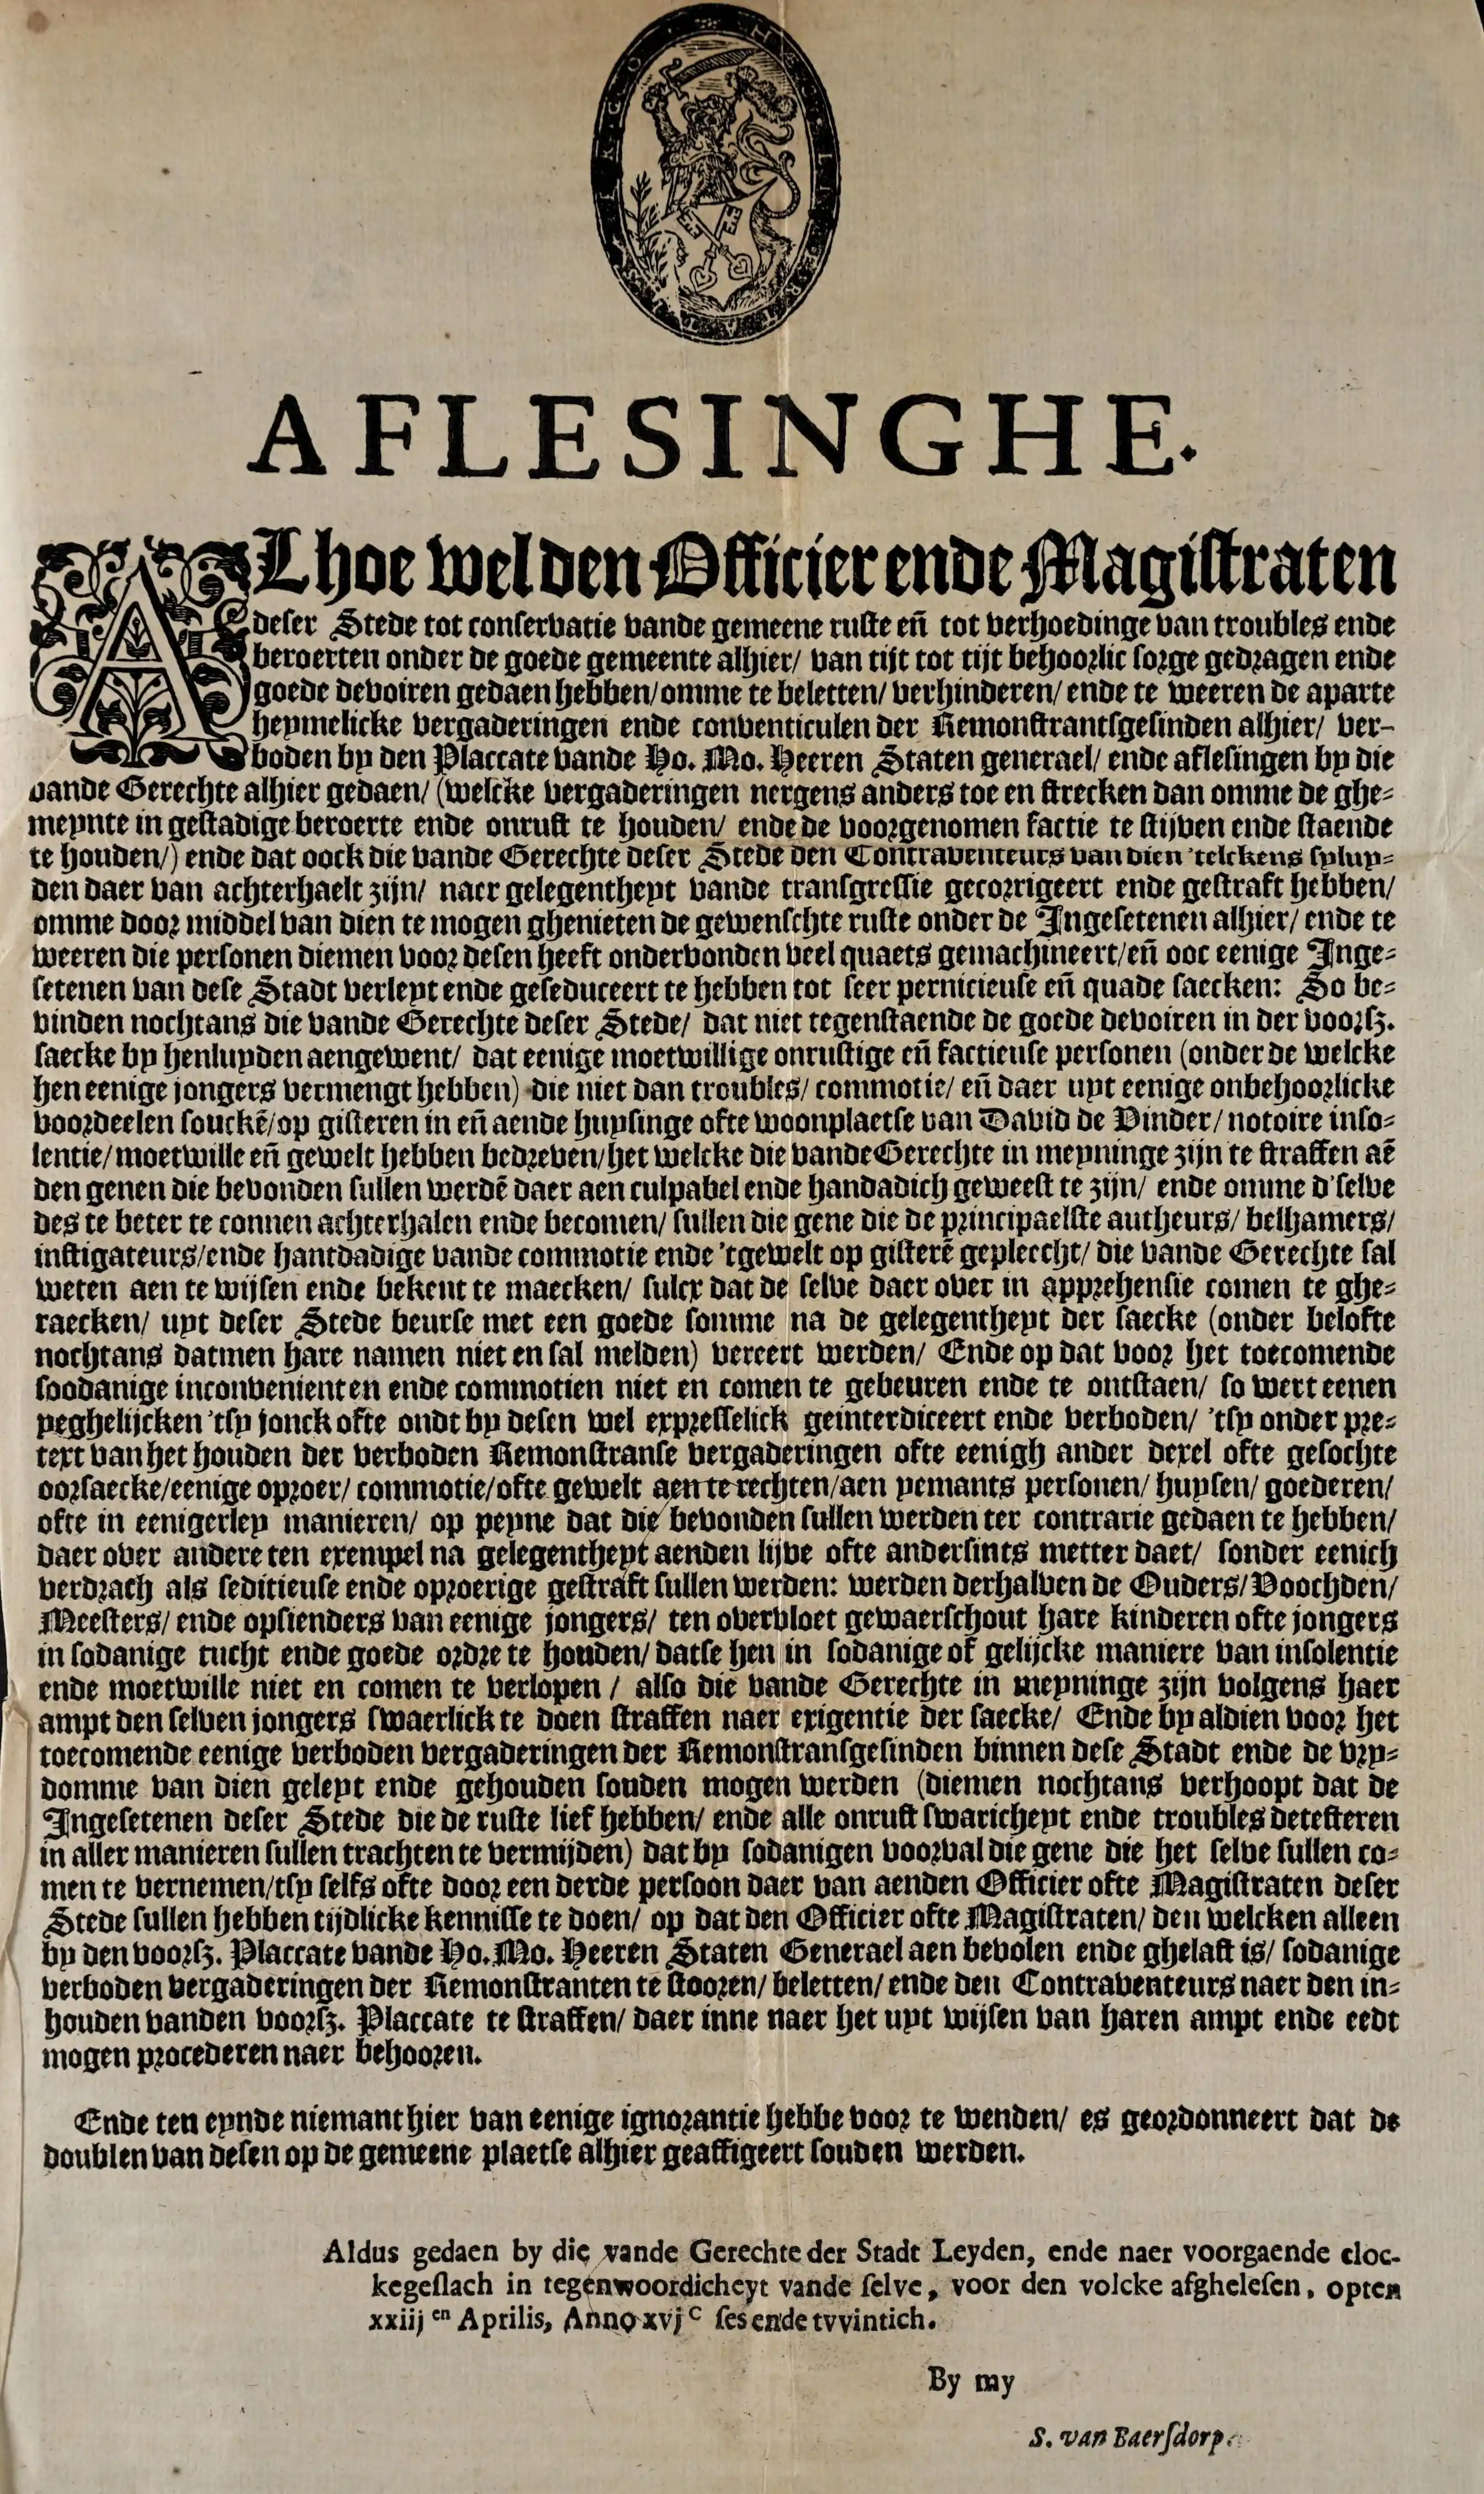 AFLESINGHE.
ALhoe wel den Officier ende Magistraten
deser Stede tot conservatie vande gemeene ruste eñ tot verhoedinge van troubles ende
beroerten onder de goede gemeente alhier/ van tijt tot tijt behoorlic sorge gedragen ende
goede devoiren gedaen hebben/omme te beletten/ verhinderen/ ende te weeren de aparte
heymelicke vergaderingen ende conventiculen der Remonstrantsgesinden alhier/ ver-
boden by den Placcate vande Ho. Mo. Heeren Staten generael/ ende aflesingen by die
vande Gerechte alhier gedaen/ (welcke vergaderingen nergens anders toe en strecken dan omme de ghe-
meynte in gestadige beroerte ende onrust te houden/ ende de voorgenomen factie te stijven ende staende
te houden/) ende dat oock die vande Gerechte deser Stede den Contraventeurs van dien 'telckens sy luy-
den daer van achterhaelt zijn/ naer gelegentheyt vande transgressie gecorrigeert ende gestraft hebben/
omme door middel van dien te mogen ghenieten de gewenschte ruste onder de Ingesetenen alhier/ ende te
weeren die personen diemen voor desen heeft ondervonden veel quaets gemachineert/eñ ooc eenige Inge-
setenen van dese Stadt verleyt ende geseduceert te hebben tot seer pernicieuse eñ quade saecken: So be-
vinden nochtans die vande Gerechte deser Stede/ dat niet tegenstaende de goede devoiren in der voorsz.
saecke by henluyden aengewent/ dat eenige moetwillige onrustige eñ factieuse personen (onder de welcke
hen eenige jongers vermengt hebben) die niet dan troubles/ commotie/ eñ daer uyt eenige onbehoorlicke
voordeelen souckē/op gisteren in eñ aende huysinge ofte woonplaetse van David de Vinder/ notoire inso-
lentie/moetwille eñ gewelt hebben bedreven/het welcke die vande Gerechte in meyninge zijn te straffen aē
den genen die bevonden sullen werdē daer aen culpabel ende handadich geweest te zijn/ ende omme d'selve
des te beter te connen achterhalen ende becomen/ sullen die gene die de principaelste autheurs/ belhamers/
instigateurs/ende hantdadige vande commotie ende 'tgewelt op gisterē gepleecht/ die vande Gerechte sal
weten aen te wijsen ende bekent te maecken/ sulcx dat de selve daer over in apprehensie comen te ghe-
raecken/ uyt deser Stede beurse met een goede somme na de gelegentheyt der saecke (onder belofte
nochtans datmen hare namen niet en sal melden) vereert werden/ Ende op dat voor het toecomende
soodanige inconvenienten ende commotien niet en comen te gebeuren ende te ontstaen/ so wert eenen
yeghelijcken 'tsy jonck ofte oudt by desen wel expresselick geinterdiceert ende verboden/ 'tsy onder pre-
text van het houden der verboden Remonstranse vergaderingen ofte eenigh ander dexel ofte gesochte
oorsaecke/eenige oproer/ commotie/ofte gewelt aen te rechten/aen yemants personen/ huysen/ goederen/
ofte in eenigerley manieren/ op peyne dat die bevonden sullen werden ter contrarie gedaen te hebben/
daer over andere ten exempel na gelegentheyt aenden lijve ofte andersints metter daet/ sonder eenich
verdrach als seditieuse ende oproerige gestraft sullen werden: werden derhalven de Ouders/ Voochden/
Meesters/ ende opsienders van eenige jongers/ ten overvloet gewaerschout hare kinderen ofte jongers
in sodanige tucht ende goede ordre te houden/ datse hen in sodanige of gelijcke maniere van insolentie
ende moetwille niet en comen te verlopen / also die vande Gerechte in meyninge zijn volgens haer
ampt den selven jongers swaerlick te doen straffen naer exigentie der saecke/ Ende by aldien voor het
toecomende eenige verboden vergaderingen der Remonstransgesinden binnen dese Stadt ende de vry-
domme van dien geleyt ende gehouden souden mogen werden (diemen nochtans verhoopt dat de
Ingesetenen deser Stede die de ruste lief hebben/ ende alle onrust swaricheyt ende troubles detesteren
in aller manieren sullen trachten te vermijden) dat by sodanigen voorval die gene die het selve sullen co-
men te vernemen/tsy selfs ofte door een derde persoon daer van aenden Officier ofte Magistraten deser
Stede sullen hebben tijdlicke kennisse te doen/ op dat den Officier ofte Magistraten/ den welcken alleen
by den voorsz. Placcate vande Ho. Mo. Heeren Staten Generael aen bevolen ende ghelast is/ sodanige
verboden vergaderingen der Remonstranten te stooren/ beletten/ ende den Contraventeurs naer den in-
houden vanden voorsz. Placcate te straffen/ daer inne naer het uyt wijsen van haren ampt ende eedt
mogen procederen naer behooren.
Ende ten eynde niemant hier van eenige ignorantie hebbe voor te wenden/ es geordonneert dat de
doublen van desen op de gemeene plaetse alhier geaffigeert souden werden.
Aldus gedaen by die vande Gerechte der Stadt Leyden, ende naer voorgaende cloc-
kegeslach in tegenwoordicheyt vande selve, voor den volcke afghelesen, opten
xxiij en Aprilis, Anno xvj c ses ende tvvintich.
By my
S. van Baersdorp.